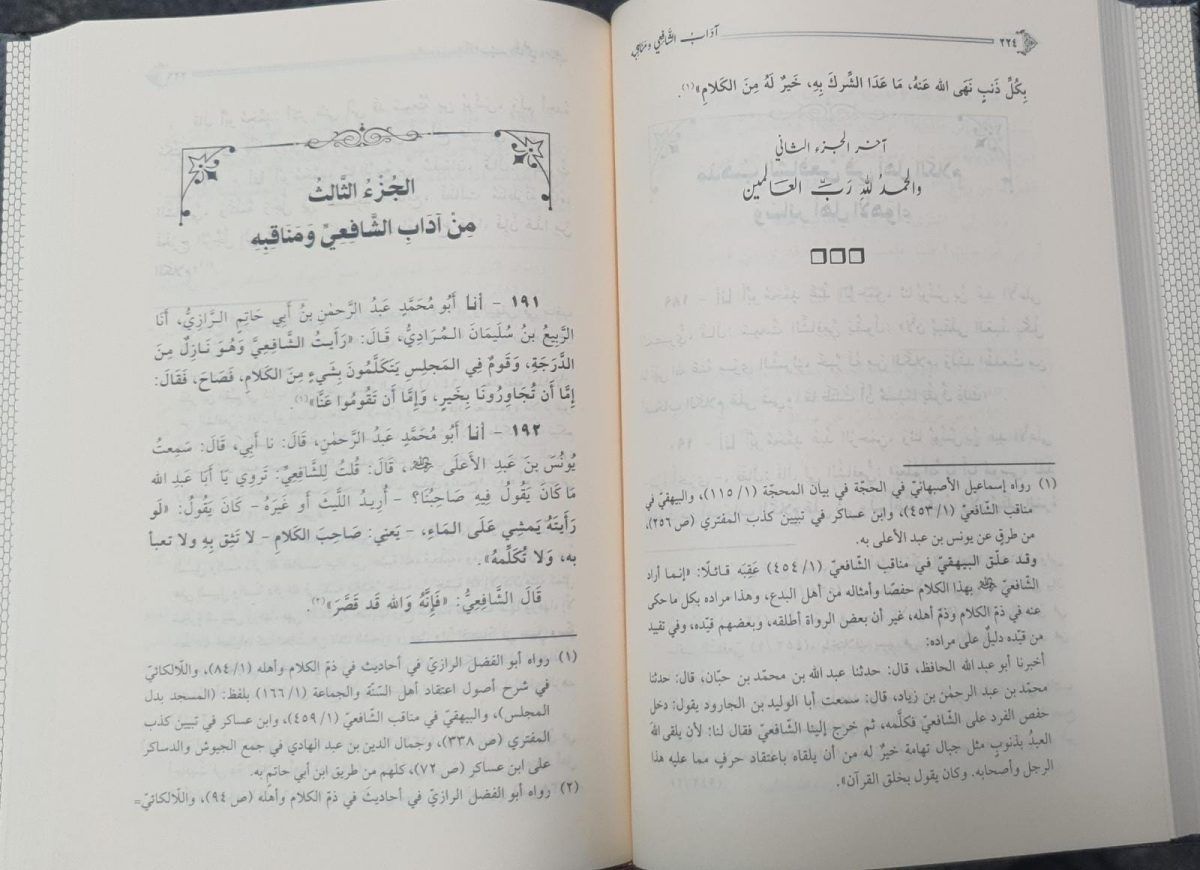 ٢٢٤
آداب الشافعي ومناقبه
بِكُلِّ ذَنبٍ نَهَى الله عَنهُ، مَا عَدَا الشِّركَ بِهِ، خَيرٌ لَهُ مِنَ الكَلَامِ»(١).
آخر الجزء الثاني
والحمدُ للهِ رَبِّ العَالَمِين
(١) رواه إسماعيل الأصبهانيّ في الحجّة في بيان المحجّة (١/ ١١٥)، والبيهقيّ في
مناقب الشّافعيّ (١/ ٤٥٣)، وابن عساكر في تبيين كذب المفتري (ص ٢٥٦)
من طرق عن يونس بن عبد الأعلى به.
وقد علّق البيهقيّ في مناقب الشّافعيّ (١/ ٤٥٤) عَقِبَه قائلًا: «إنما أراد
الشّافعيّ رضي الله عنه بهذا الكلام حفصًا وأمثاله من أهل البدع، وهذا مراده بكل ما حكى
عنه في ذمّ الكلام وذمّ أهله، غير أن بعض الرواة أطلقه، وبعضهم قيّده، وفي تقيد
من قيّده دليلٌ على مراده:
أخبرنا أبو عبد الله الحافظ، قال: حدثنا عبد الله بن محمّد بن حبّان، قال: حدثنا
محمّد بن عبد الرحمٰن بن زياد، قال: سمعت أبا الوليد بن الجارود يقول: دخل
حفص الفرد على الشّافعيّ فكلَّمه، ثم خرج إلينا الشّافعيّ فقال لنا: لأن يلقى اللهَ
العبدُ بذنوبٍ مثل جبال تهامة خيرٌ له من أن يلقاه باعتقاد حرفٍ مما عليه هذا
الرجل وأصحابه. وكان يقول بخلق القرآن».
الجُزْءُ الثَّالِثُ
مِنْ آدَابِ الشَّافِعِيِّ وَمَنَاقِبِهِ
١٩١ - أنا أَبُو مُحَمَّدٍ عَبدُ الرَّحمٰنِ بنُ أَبِي حَاتِمٍ الرَّازِيُّ، أَنَا
الرَّبِيعُ بنُ سُلَيمَانَ المُرَادِيُّ، قَالَ: «رَأَيتُ الشَّافِعِيَّ وَهُوَ نَازِلٌ مِنَ
الدَّرَجَةِ، وَقَومٌ فِي المَجلِسِ يَتَكَلَّمُونَ بِشَيءٍ مِنَ الكَلَامِ، فَصَاحَ، فَقَالَ:
إِمَّا أَن تُجَاوِرُونَا بِخَيرٍ، وَإِمَّا أَن تَقُومُوا عَنَّا»(١).
١٩٢ - أنا أَبُو مُحَمَّدٍ عَبدُ الرَّحمٰنِ، قَالَ: نا أَبِي، قَالَ: سَمِعتُ
يُونُسَ بنَ عَبدِ الأَعلَى رضي الله عنه، قَالَ: قُلتُ لِلشَّافِعِيِّ: تَروِي يَا أَبَا عَبدِ الله
مَا كَانَ يَقُولُ فِيهِ صَاحِبُنَا؟ - أُرِيدُ اللَّيثَ أَو غَيرَهُ - كَانَ يَقُولُ: «لَو
رَأَيتَهُ يَمشِي عَلَى المَاءِ، - يَعنِي: صَاحِبَ الكَلَامِ - لَا تَثِق بِهِ ولا تعبأ
به، وَلَا تُكَلِّمهُ».
قَالَ الشَّافِعِيُّ: «فَإِنَّهُ وَالله قَد قَصَّرَ»(٢).
(١) رواه أبو الفضل الرازيّ في أحاديث في ذمّ الكلام وأهله (١/ ٨٤)، واللّالكائيّ
في شرح أصول اعتقاد أهل السّنّة والجماعة (١/ ١٦٦) بلفظ: (المسجد بدل
المجلس)، والبيهقيّ في مناقب الشّافعيّ (١/ ٤٥٩)، وابن عساكر في تبيين كذب
المفتري (ص ٣٣٨)، وجمال الدين بن عبد الهادي في جمع الجيوش والدساكر
على ابن عساكر (ص ٧٢)، كلهم من طريق ابن أبي حاتم به.
(٢) رواه أبو الفضل الرازيّ في أحاديث في ذمّ الكلام وأهله (ص ٩٤)، واللّالكائيّ=